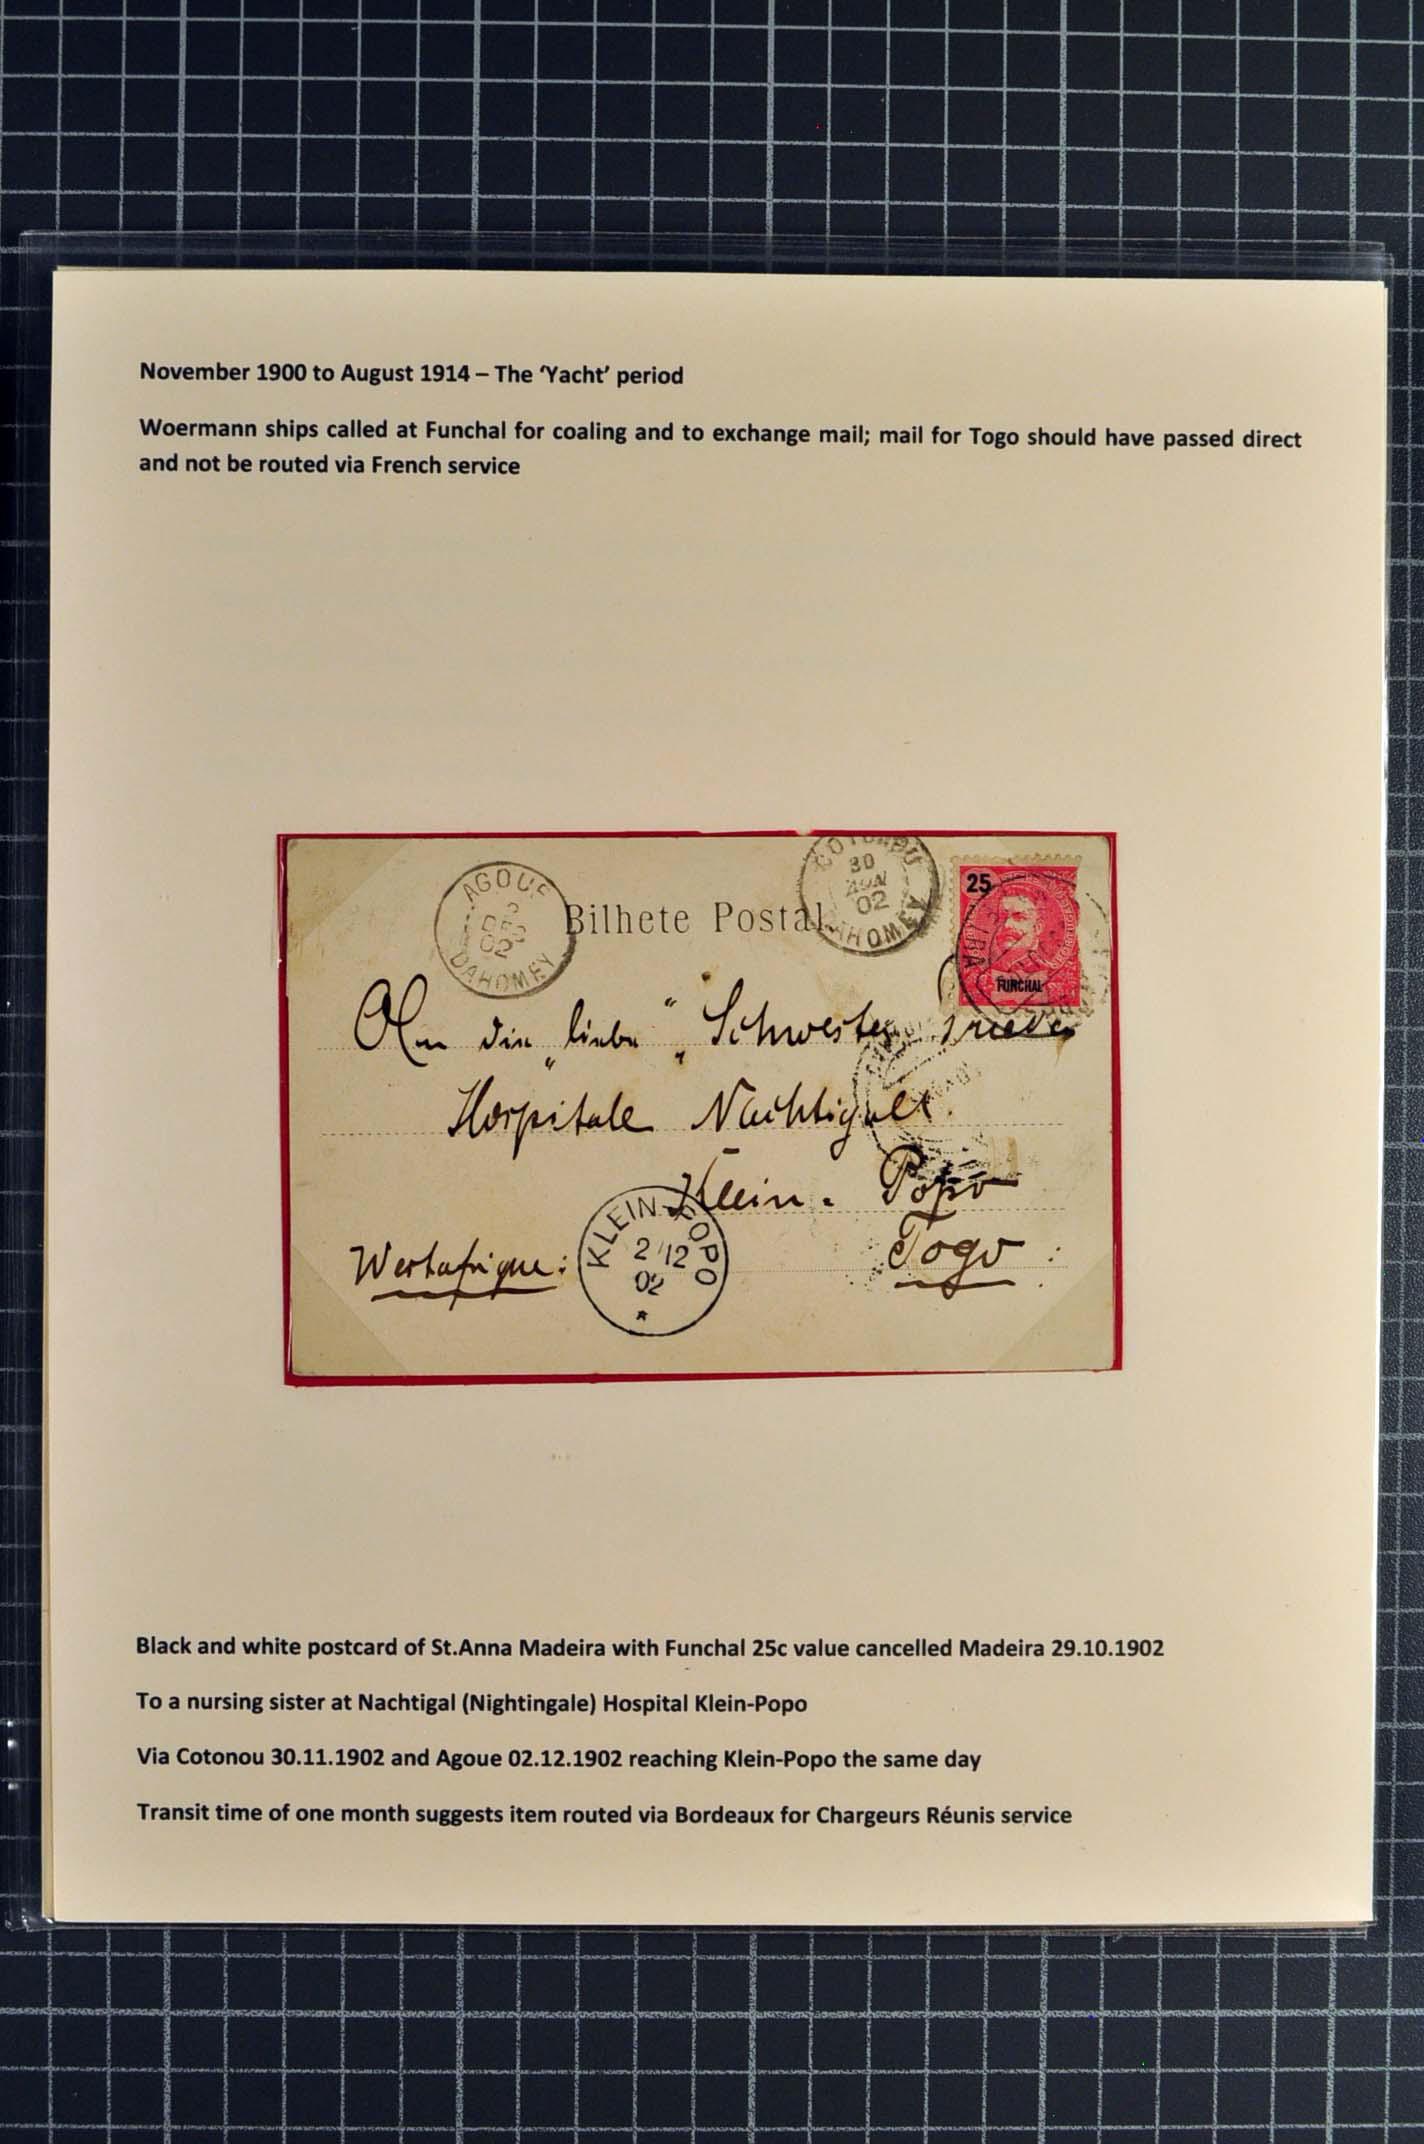 November 1900 to August 1914 – The ‘Yacht’ period
Woermann ships called at Funchal for coaling and to exchange mail; mail for Togo should have passed direct
and not be routed via French service
COTONOU
30
NOV
02
DAHOMEY
AGOUE
2
DEC
02
DAHOMEY
25
FUNCHAL
Bilhete Postal
An die „liebe“ Schwester Frieda
Hospitale Nachtigall.
Klein-Popo
Togo
Westafrique:
KLEIN-POPO
2/12
02
*
Black and white postcard of St.Anna Madeira with Funchal 25c value cancelled Madeira 29.10.1902
To a nursing sister at Nachtigal (Nightingale) Hospital Klein-Popo
Via Cotonou 30.11.1902 and Agoue 02.12.1902 reaching Klein-Popo the same day
Transit time of one month suggests item routed via Bordeaux for Chargeurs Réunis service